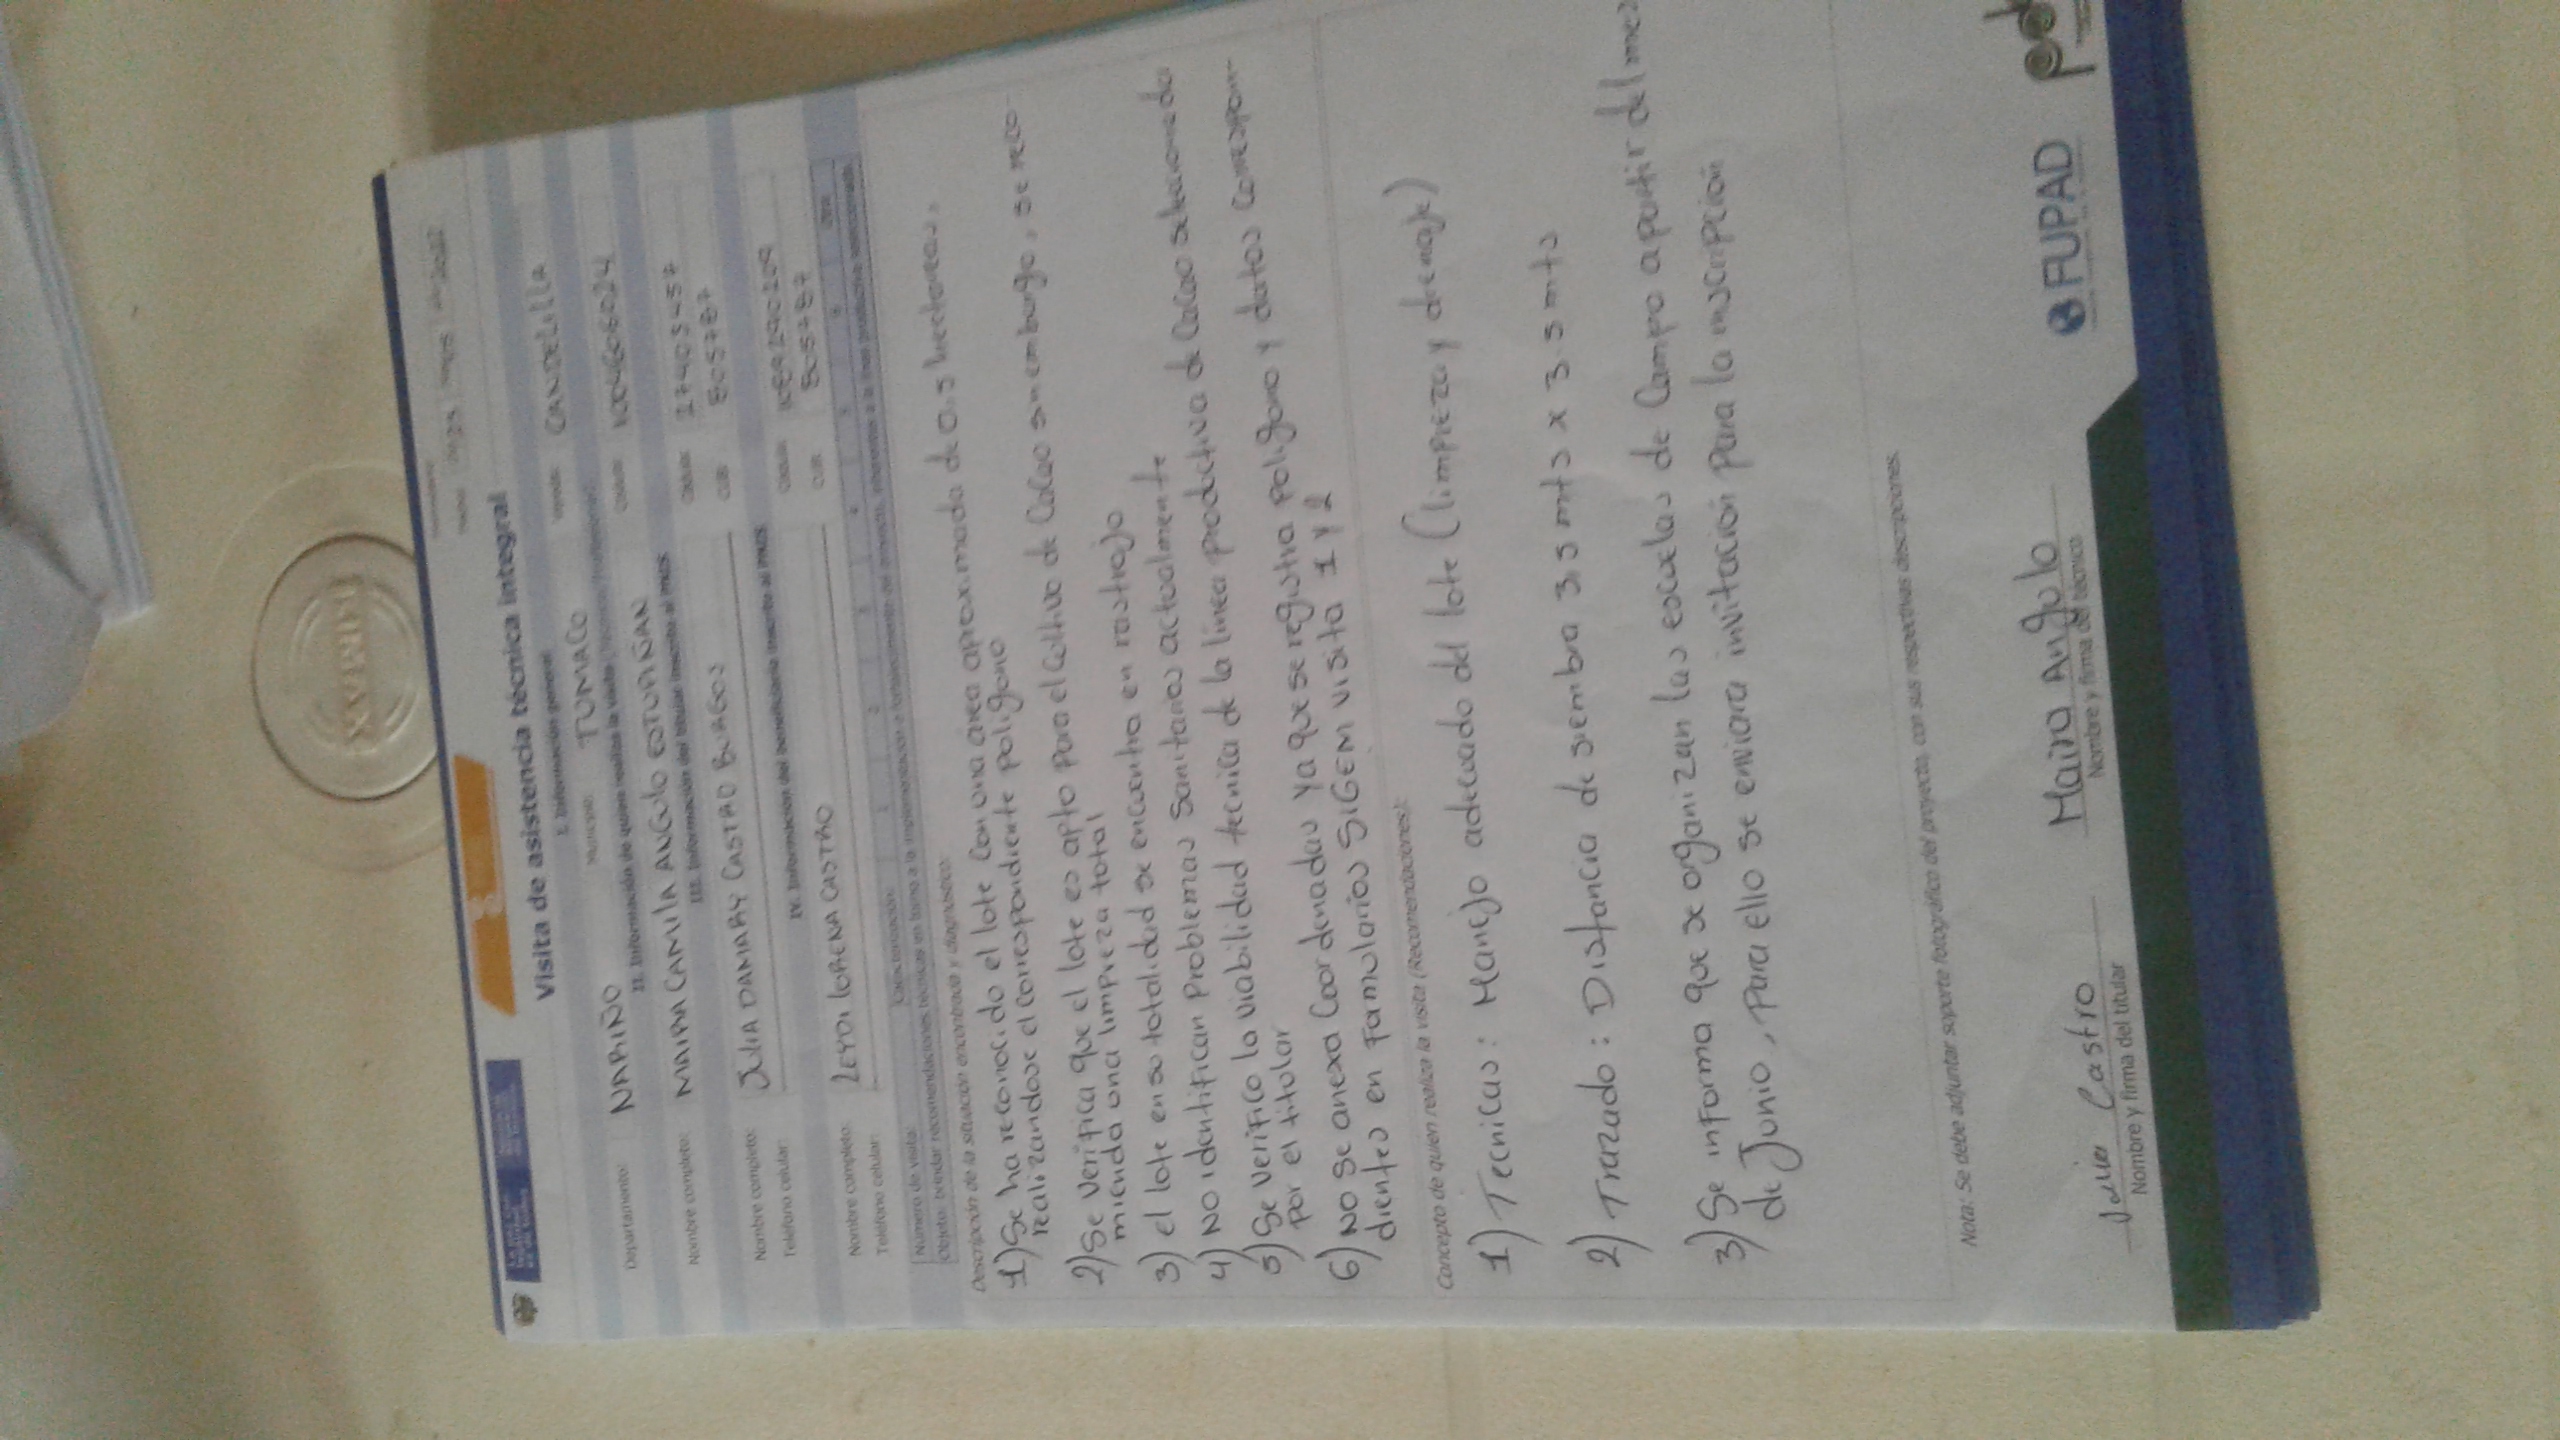 Visita de asistencia técnica integral
I. Información general
Departamento: NARIÑO Municipio: TUMACO Vereda: CANDELILLA
II. Información de quien realiza la visita
Nombre completo: MAIRA CAMILA ANGULO ESTUPIÑAN Cédula: 1004606024
III. Información del titular inscrito al
Nombre completo: JULIA DAMARY CASTRO BURGOS Cédula: 27403457
Teléfono celular: CUB 805787
IV. Información del beneficiario inscrito al
Nombre completo: LEYDI LORENA CASTRO Cédula: 1089290209
Teléfono celular: CUB 805787
Número de visita: Caracterización 1 2 3 4 5 6 Otra
Objeto: brindar recomendaciones técnicas en torno a la implementación o fortalecimiento del proyecto,
Descripción de la situación encontrada y diagnóstico:
1) Se ha reconocido el lote con una área aproximada de 0.5 hectareas,
realizandose el correspondiente poligono
2) Se verifica que el lote es apto para el cultivo de cacao sin embargo, se reco-
mienda una limpieza total
3) el lote en su totalidad se encuentra en rastrojo
4) No identifican Problemas Sanitarios actualmente
5) Se verifico la viabilidad tecnica de la línea productiva de cacao seleccionada
por el titular
6) No se anexa Coordenadas ya que se registra poligono y datos correspon-
dientes en Formularios SIGEM visita 1 y 2
Concepto de quien realiza la visita (Recomendaciones):
1) Tecnicas: Manejo adecuado del lote (limpieza y drenaje)
2) Trazado: Distancia de siembra 3,5 mts x 3.5 mts
3) Se informa que se organizan las escuelas de Campo apartir del mes
de Junio, Para ello se enviara invitación para la inscripción
Nota: Se debe adjuntar soporte fotográfico del proyecto, con sus respectivas descripciones.
Julia Castro Maira Angulo
Nombre y firma del titular Nombre y firma del técnico
FUPAD